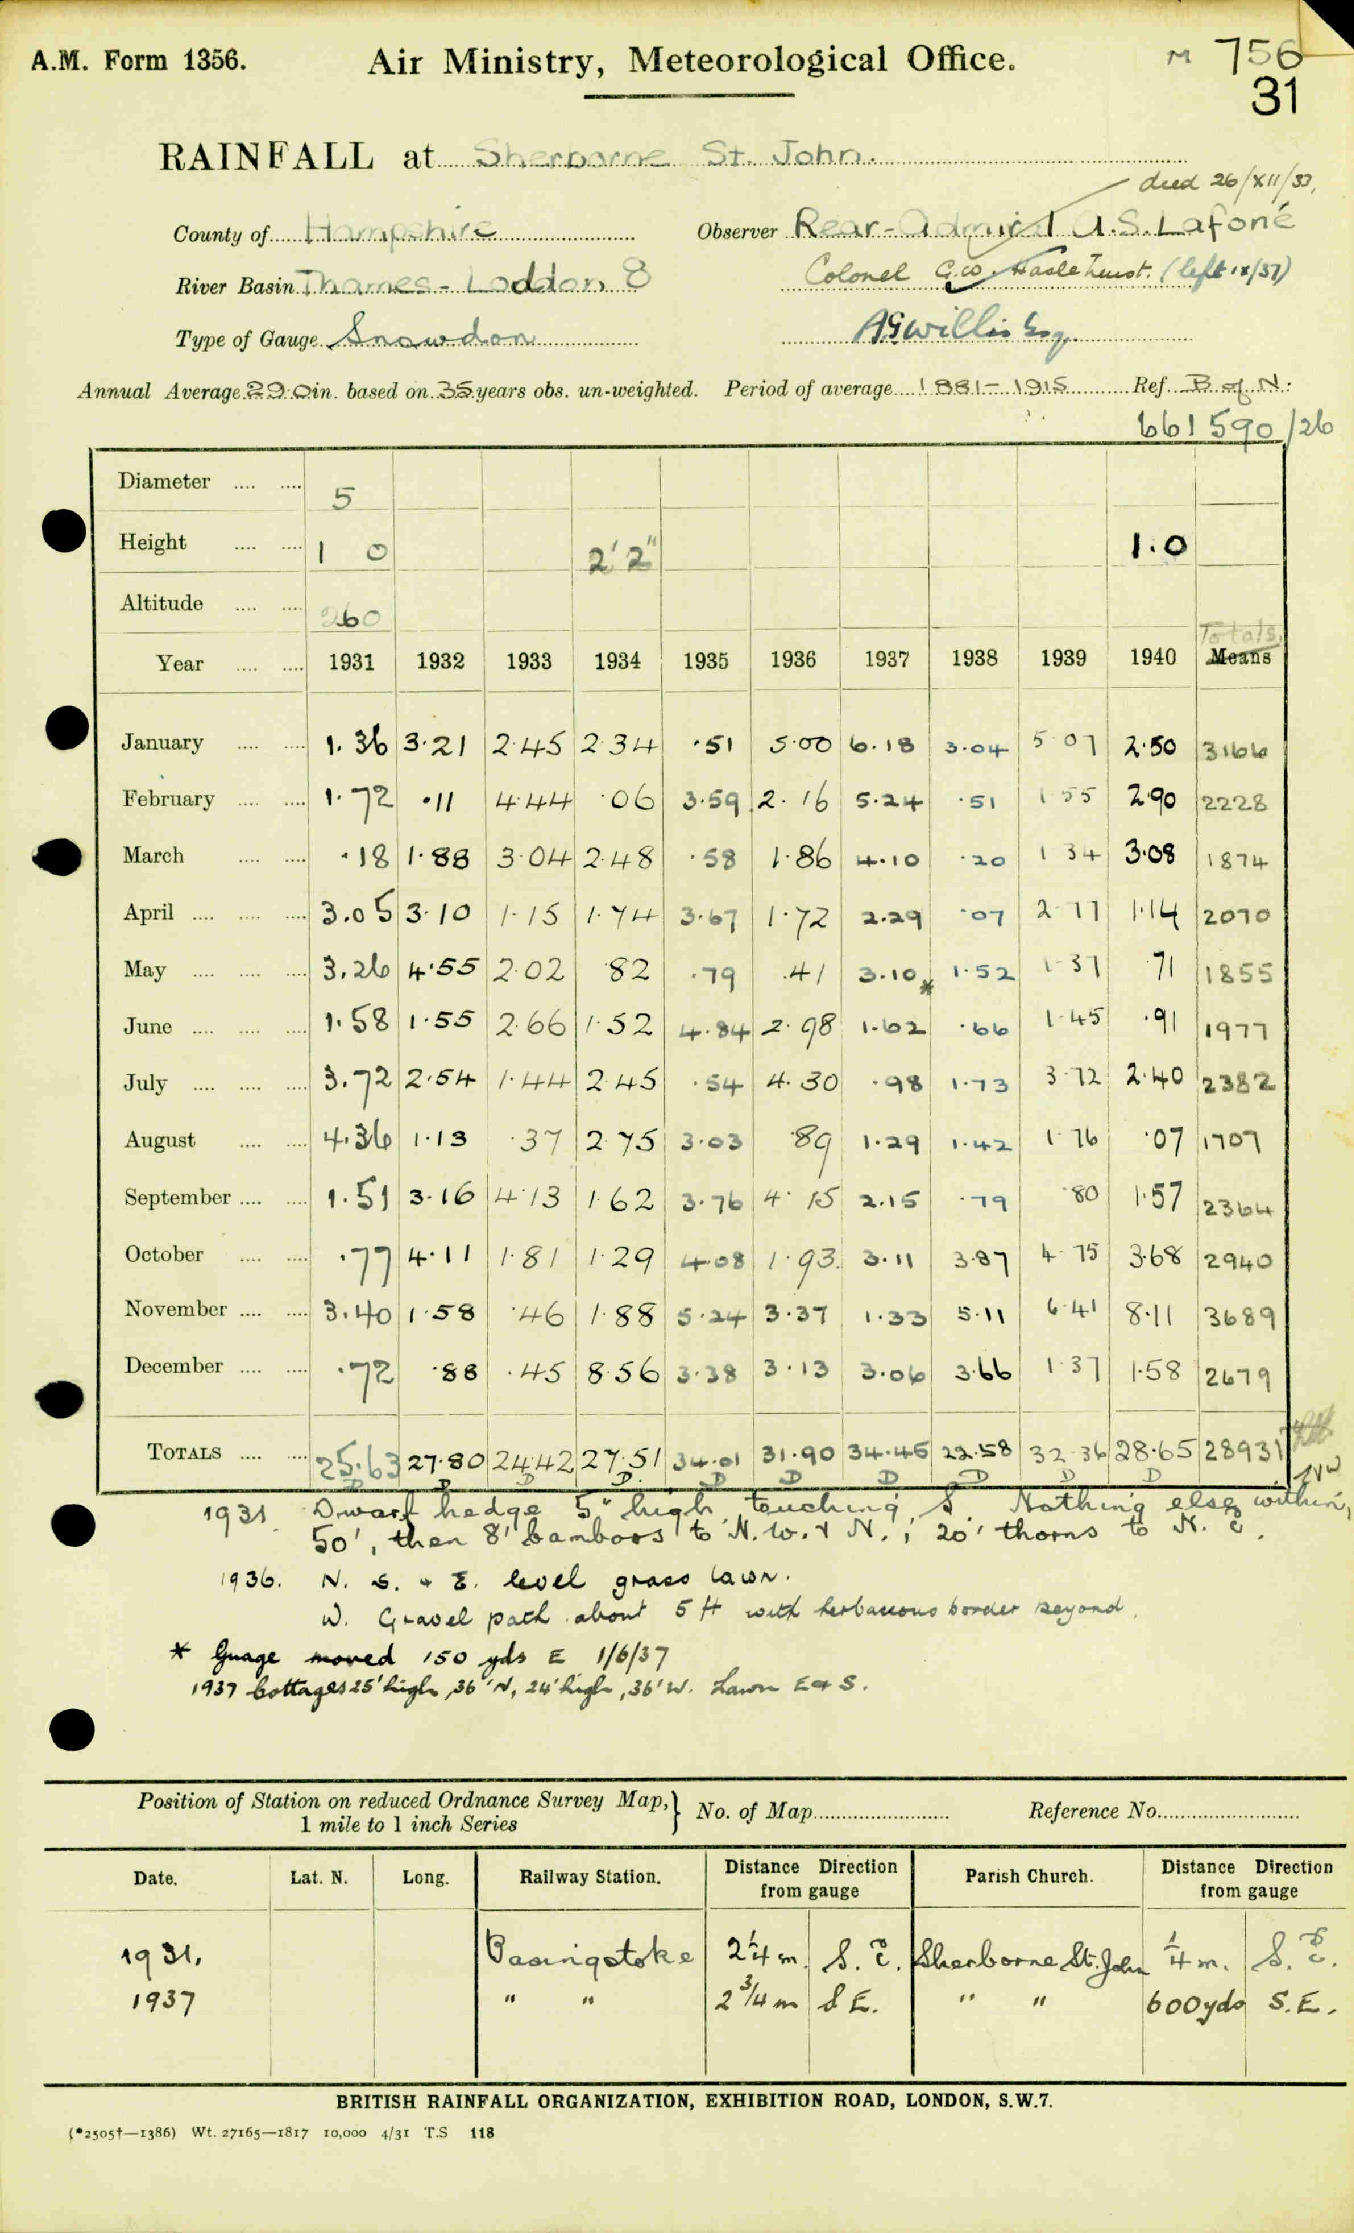 A.M. Form 1356. Air Ministry, Meteorological Office. M 756
31
RAINFALL at Sherborne St. John.
died 26/XII/33.
County of Hampshire Observer Rear-Admiral A.S. Lafoné
River Basin Thames - Loddon 8 Colonel G.W. Haslehurst. (left ix/37)
Type of Gauge Snowdon A G Willis Esq.
Annual Average 29.0 in. based on 35 years obs. un-weighted. Period of average 1881-1915 Ref. B of N.
661590/26
Diameter .... .... 5
Height .... .... 1 0 2' 2" 1.0
Altitude .... .... 260
Totals
Year .... .... 1931 1932 1933 1934 1935 1936 1937 1938 1939 1940 Means
January .... .... 1.36 3.21 2.45 2.34 .51 5.00 6.18 3.04 5.07 2.50 3166
February .... .... 1.72 .11 4.44 .06 3.59 2.16 5.24 .51 1.55 2.90 2228
March .... .... .18 1.88 3.04 2.48 .58 1.86 4.10 .20 1.34 3.08 1874
April .... .... .... 3.05 3.10 1.15 1.74 3.67 1.72 2.29 .07 2.77 1.14 2070
May .... .... .... 3.26 4.55 2.02 .82 .79 .41 3.10* 1.52 1.37 .71 1855
June .... .... .... 1.58 1.55 2.66 1.52 4.84 2.98 1.62 .66 1.45 .91 1977
July .... .... .... 3.72 2.54 1.44 2.45 .54 4.30 .98 1.73 3.72 2.40 2382
August .... .... 4.36 1.13 .37 2.75 3.03 .89 1.29 1.42 1.76 .07 1707
September .... .... 1.51 3.16 4.13 1.62 3.76 4.15 2.15 .79 .80 1.57 2364
October .... .... .77 4.11 1.81 1.29 4.08 1.93 3.11 3.87 4.75 3.68 2940
November .... .... 3.40 1.58 .46 1.88 5.24 3.37 1.33 5.11 6.41 8.11 3689
December .... .... .72 .88 .45 8.56 3.38 3.13 3.06 3.66 1.37 1.58 2679
TOTALS .... .... 25.63 27.80 24.42 27.51 34.01 31.90 34.45 22.58 32.36 28.65 28931
D D D D D D D D D D
1931 Dwarf hedge 5" high touching S. Nothing else within
50', then 8' bamboos to N.W. & N.; 20' thorns to N.E.
1936. N. S. & E. level grass lawn.
W. Gravel path about 5 ft with herbaceous border beyond.
* Guage moved 150 yds E 1/6/37
1937 Cottages 25' high, 36' N, 24' high, 36' W. Lawn E & S.
Position of Station on reduced Ordnance Survey Map, } No. of Map Reference No.
1 mile to 1 inch Series
Date. Lat. N. Long. Railway Station. Distance Direction from gauge Parish Church. Distance Direction from gauge
1931. Basingstoke 2¼ m. S.E. Sherborne St. John ¼ m. S.E.
1937 " " 2 3/4 m S E. " " 600 yds S.E.
BRITISH RAINFALL ORGANIZATION, EXHIBITION ROAD, LONDON, S.W.7.
(*2505†—1386) Wt. 27165—1817 10,000 4/31 T.S 118